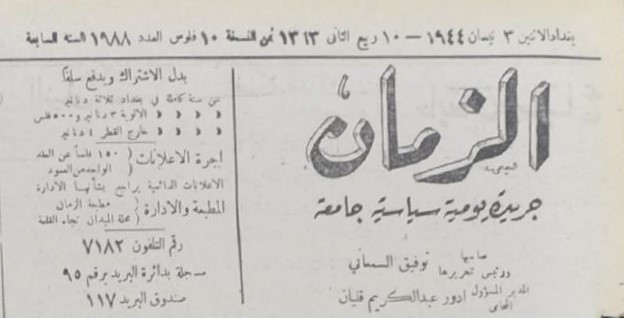 بغداد الاثنين ٣ نيسان ١٩٤٤ — ١٠ ربيع الثانى ١٣٦٣ ثمن النسخة ١٠ فلوس العدد ١٩٨٨ السنه السابعة
الزمان
جريدة يومية سياسية جامعة
صاحبها
ورئيس تحريرها توفيق السمعاني
المدير المسؤول ادور عبدالكريم قليان
المحامي
بدل الاشتراك ويدفع سلفاً
عن سنة كاملة في بغداد ثلاثة دنانير
» » » » الالوية ٣ دنانير و٥٠٠ فلس
» » » » خارج القطر ٤ دنانير
اجرة الاعلانات ( ١٥٠ فلساً عن العقد
الواحد من العمود
الاعلانات الدائمية يراجع بشأنها الادارة
المطبعة والادارة ( مطبعة الزمان
محلة الميدان تجاه القلعة
رقم التلفون ٧١٨٢
مسجلة بدائرة البريد برقم ٩٥
صندوق البريد ١١٧